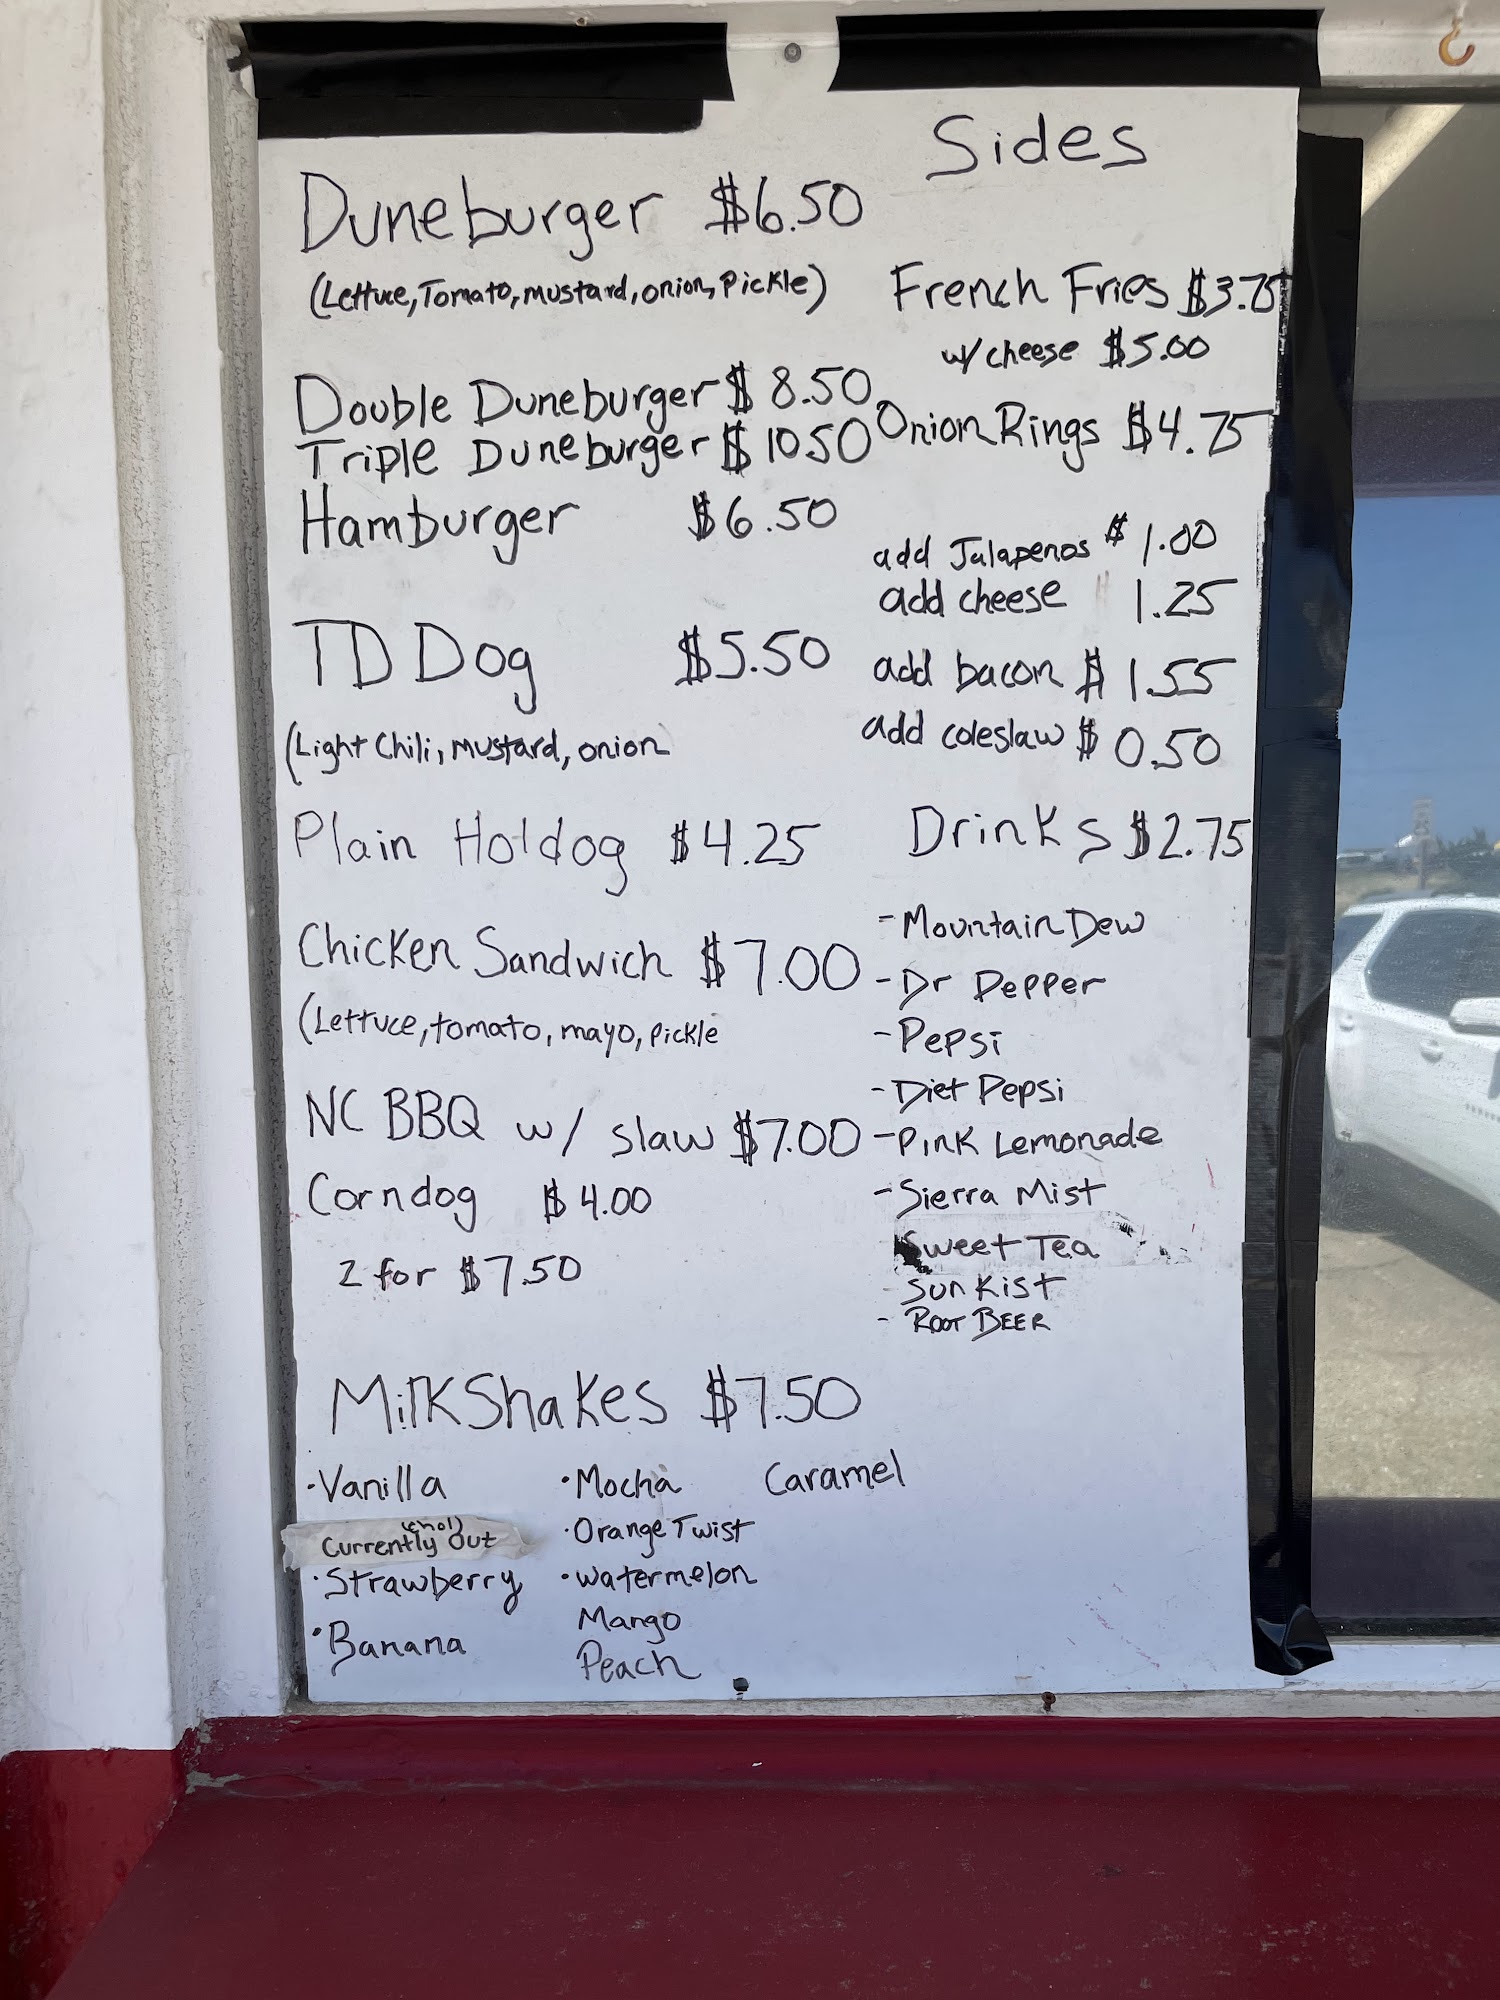 Duneburger $6.50
(Lettuce, Tomato, mustard, onion, Pickle)
Double Duneburger $ 8.50
Triple Duneburger $ 10.50
Hamburger $6.50
TD Dog $5.50
(Light Chili, mustard, onion
Plain Hotdog $4.25
Chicken Sandwich $7.00
(Lettuce, tomato, mayo, pickle
NC BBQ w/ slaw $7.00
Corndog $4.00
2 for $7.50
Sides
French Fries $3.75
w/ cheese $5.00
Onion Rings $4.75
add Jalapenos $1.00
add cheese 1.25
add bacon $1.55
add coleslaw $0.50
Drinks $2.75
- Mountain Dew
- Dr Pepper
- Pepsi
- Diet Pepsi
- Pink Lemonade
- Sierra Mist
Sweet Tea
Sunkist
- Root Beer
Milkshakes $7.50
· Vanilla
(chol)
Currently Out
· Strawberry
· Banana
· Mocha
· Orange Twist
· Watermelon
Mango
Peach
Caramel